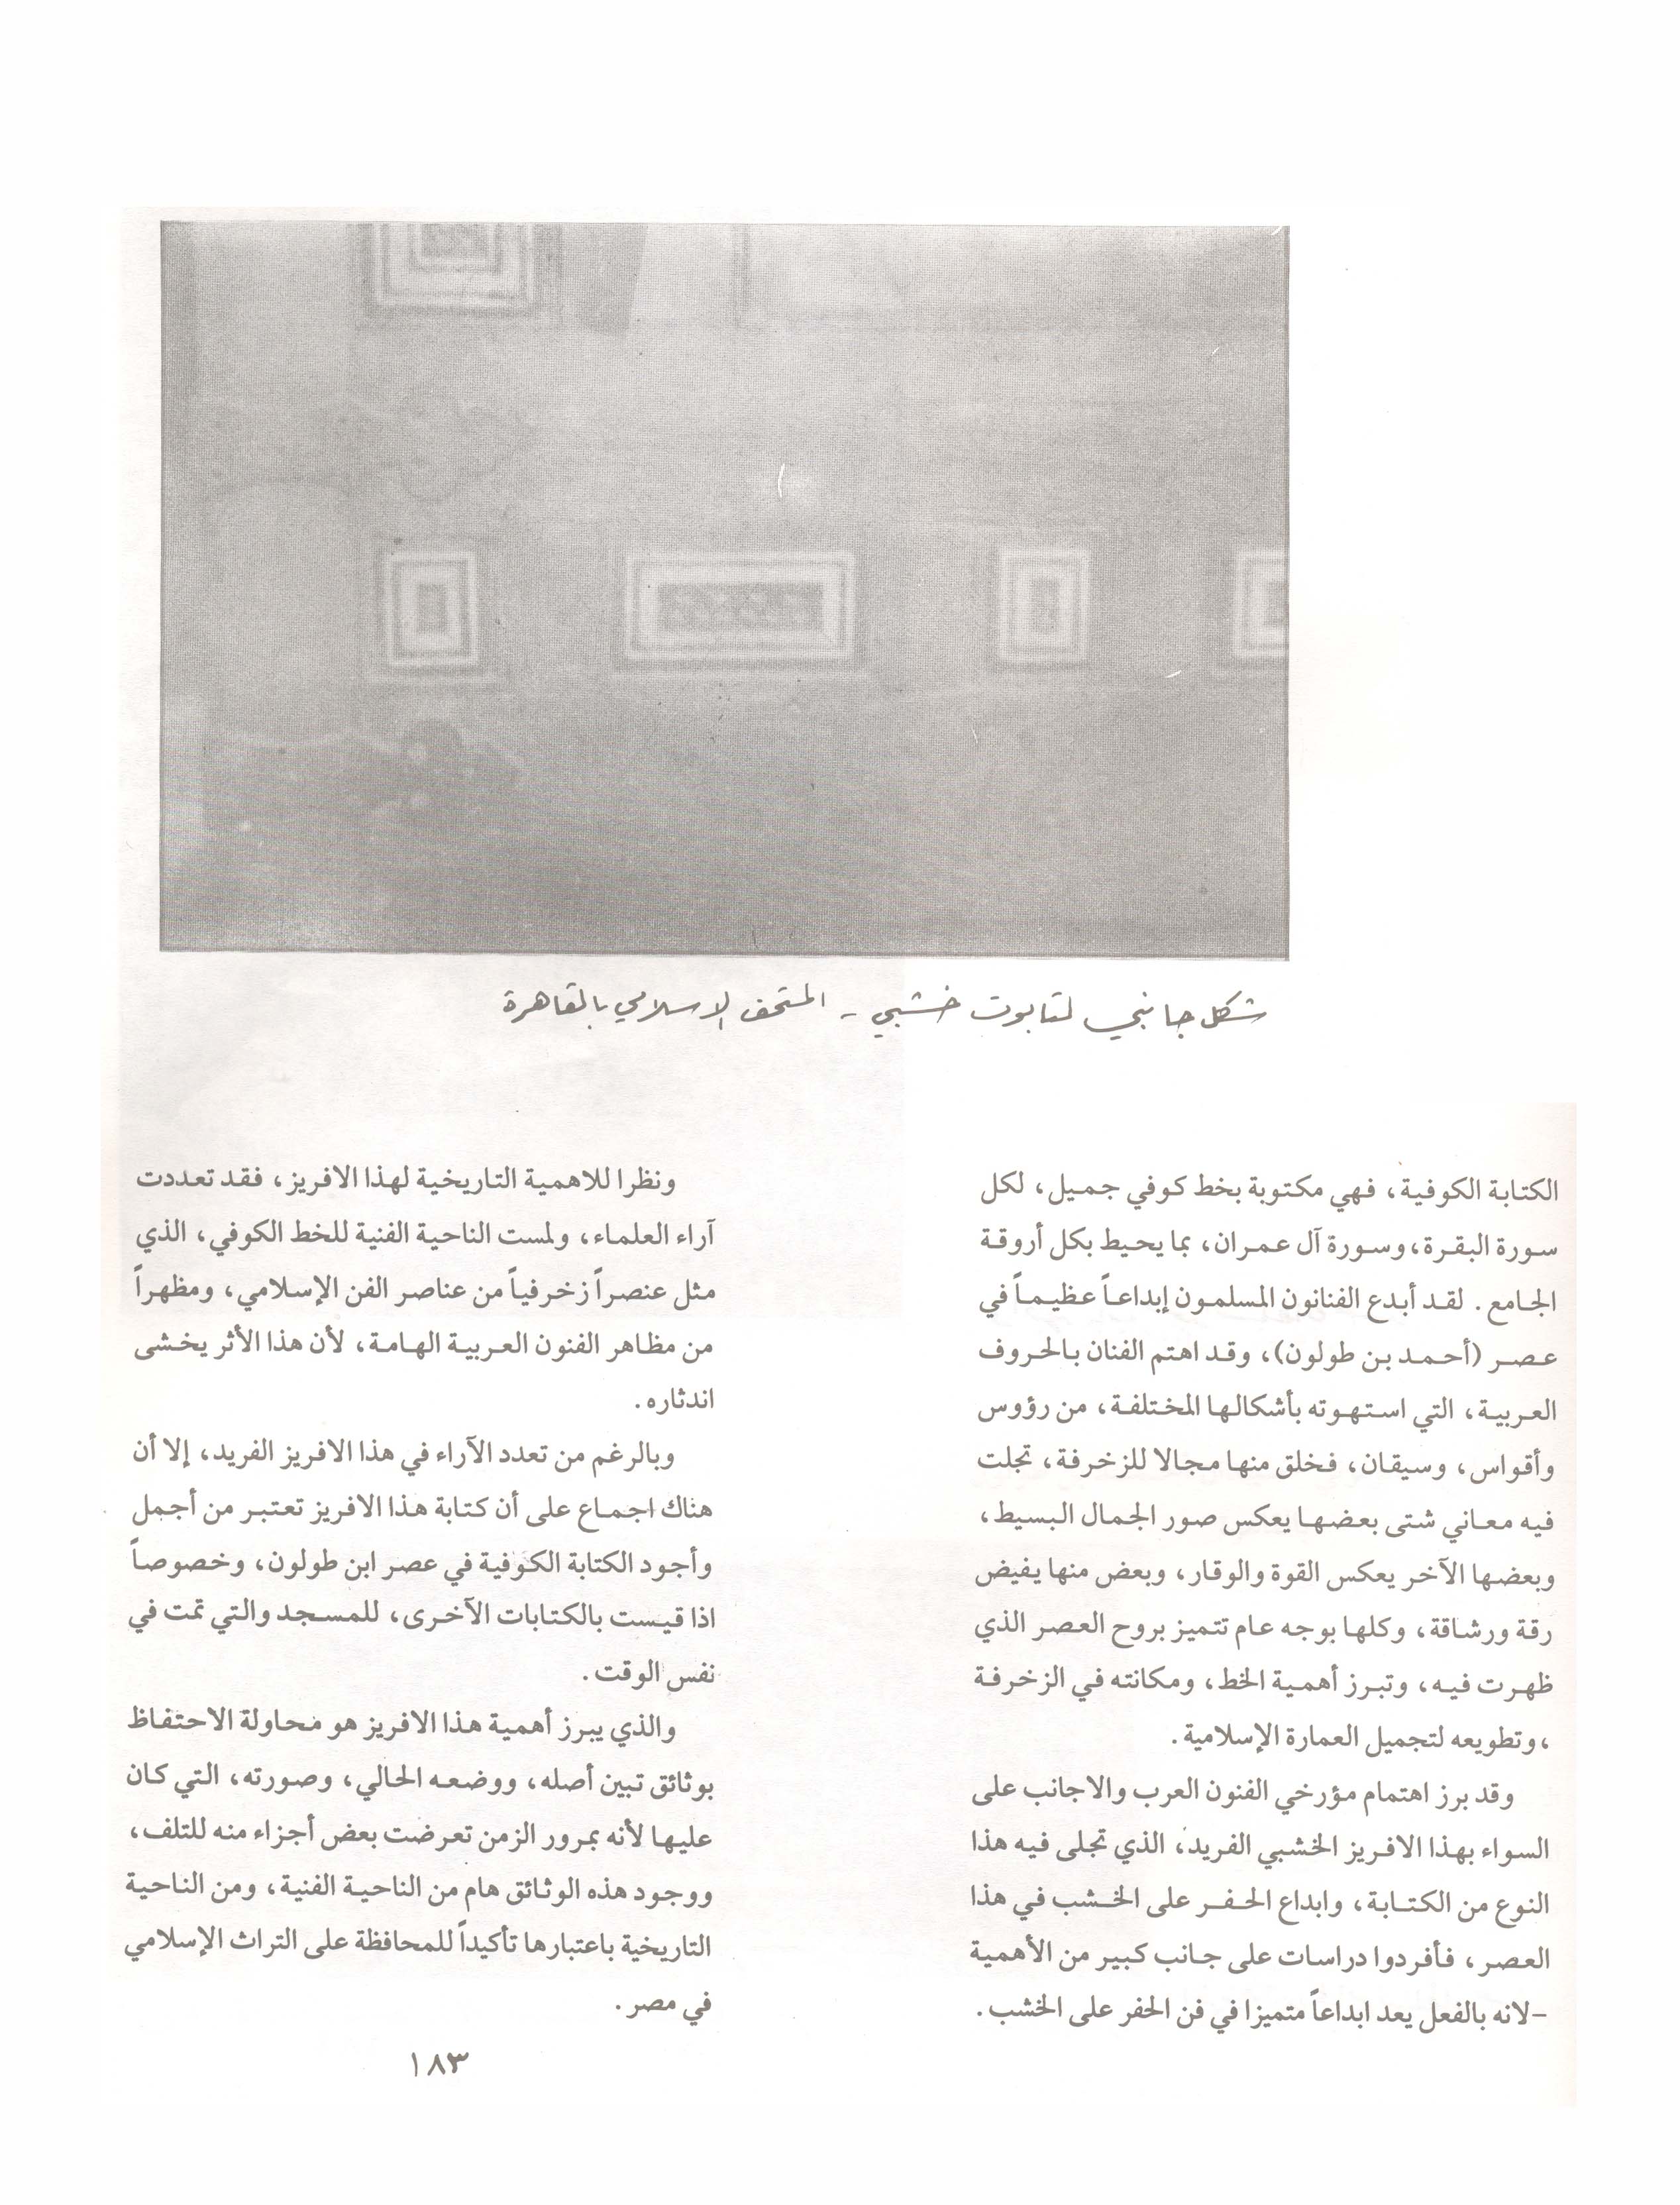 شكل جانبي لتابوت خشبي - المتحف الإسلامي بالقاهرة
الكتابة الكوفية، فهي مكتوبة بخط كوفي جميل، لكل
سورة البقرة، وسورة آل عمران، بما يحيط بكل أروقة
الجامع. لقد أبدع الفنانون المسلمون إبداعاً عظيماً في
عصر (أحمد بن طولون)، وقد اهتم الفنان بالحروف
العربية، التي استهوته بأشكالها المختلفة، من رؤوس
وأقواس، وسيقان، فخلق منها مجالا للزخرفة، تجلت
فيه معاني شتى بعضها يعكس صور الجمال البسيط،
وبعضها الآخر يعكس القوة والوقار، وبعض منها يفيض
رقة ورشاقة، وكلها بوجه عام تتميز بروح العصر الذي
ظهرت فيه، وتبرز أهمية الخط، ومكانته في الزخرفة
،وتطويعه لتجميل العمارة الإسلامية.
وقد برز اهتمام مؤرخي الفنون العرب والاجانب على
السواء بهذا الافريز الخشبي الفريد، الذي تجلى فيه هذا
النوع من الكتابة، وابداع الحفر على الخشب في هذا
العصر، فأفردوا دراسات على جانب كبير من الأهمية
-لانه بالفعل يعد ابداعاً متميزا في فن الحفر على الخشب.
ونظرا للاهمية التاريخية لهذا الافريز، فقد تعددت
آراء العلماء، ولمست الناحية الفنية للخط الكوفي، الذي
مثل عنصراً زخرفياً من عناصر الفن الإسلامي، ومظهراً
من مظاهر الفنون العربية الهامة، لأن هذا الأثر يخشى
اندثاره.
وبالرغم من تعدد الآراء في هذا الافريز الفريد، إلا أن
هناك اجماع على أن كتابة هذا الافريز تعتبر من أجمل
وأجود الكتابة الكوفية في عصر ابن طولون، وخصوصاً
اذا قيست بالكتابات الآخرى، للمسجد والتي تمت في
نفس الوقت.
والذي يبرز أهمية هذا الافريز هو محاولة الاحتفاظ
بوثائق تبين أصله، ووضعه الحالي، وصورته، التي كان
عليها لأنه بمرور الزمن تعرضت بعض أجزاء منه للتلف،
ووجود هذه الوثائق هام من الناحية الفنية، ومن الناحية
التاريخية باعتبارها تأكيداً للمحافظة على التراث الإسلامي
في مصر.
١٨٣